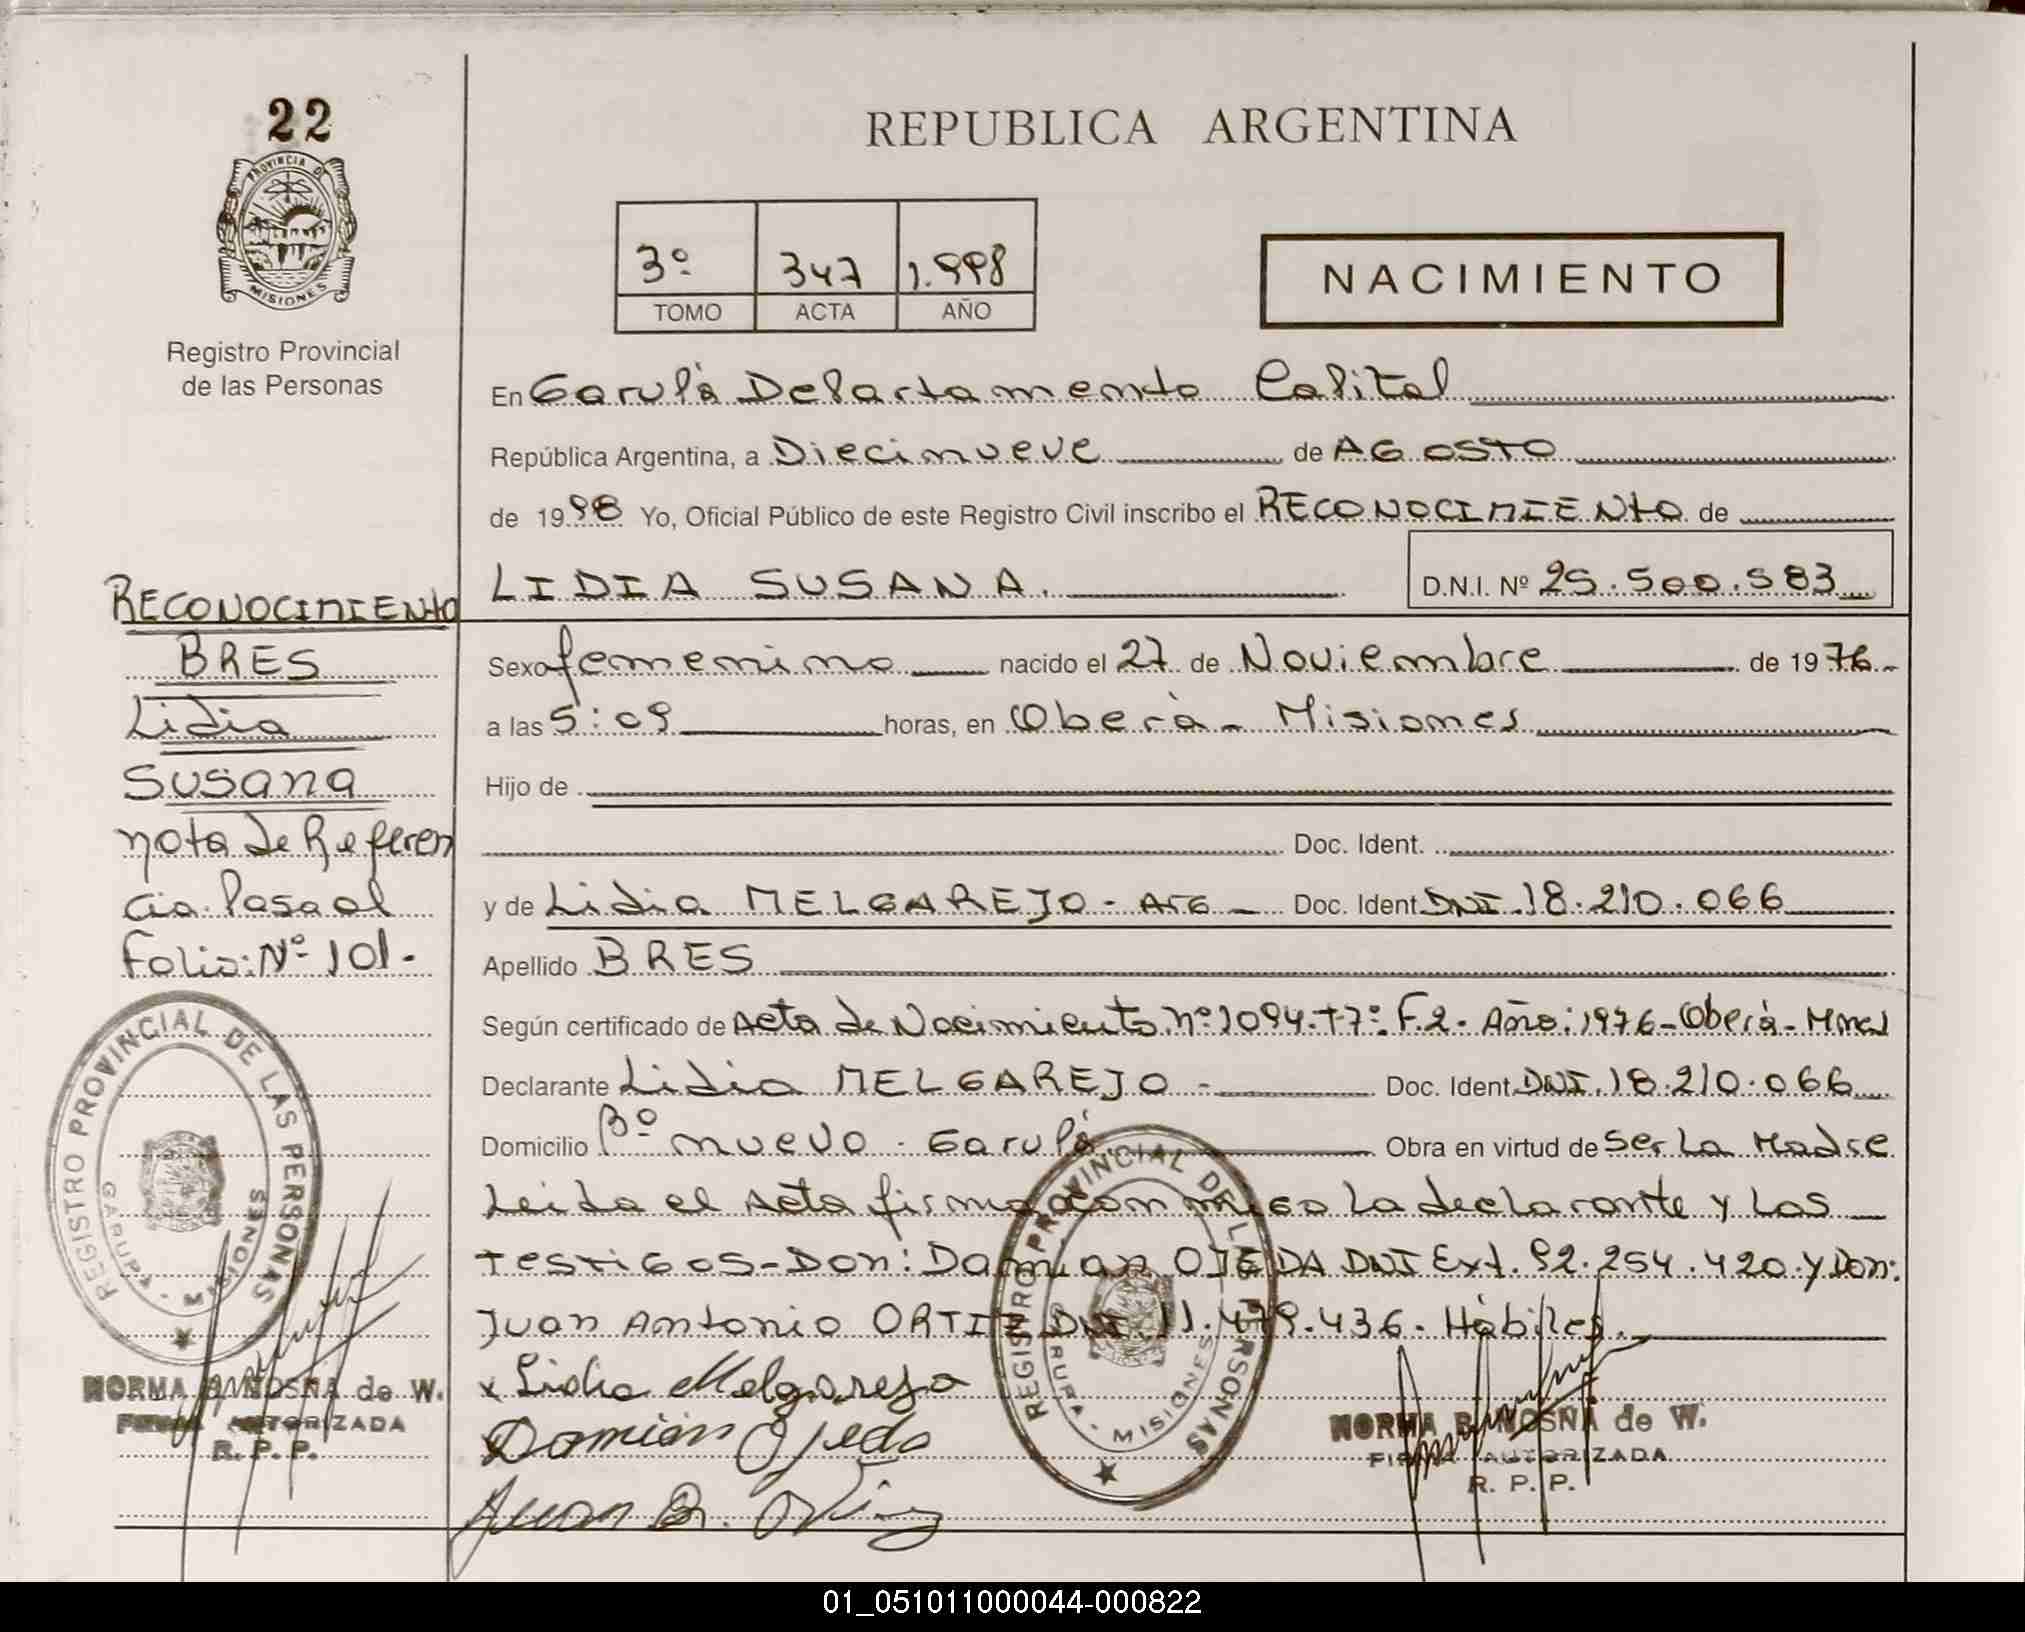 22
PROVINCIA DE
MISIONES
Registro Provincial
de las Personas
REPUBLICA ARGENTINA
3º 347 1.998
TOMO ACTA AÑO
NACIMIENTO
En Garupá Departamento Capital
República Argentina, a Diecinueve de AGOSTO
de 1998 Yo, Oficial Público de este Registro Civil inscribo el RECONOCIMIENTO de
LIDIA SUSANA. D.N.I. Nº 25.500.583
RECONOCIMIENTO
BRES
Lidia
Susana
nota de Referen
cia Pasa al
Folio: Nº 101.
Sexo femenino nacido el 27 de Noviembre de 1976
a las 5:09 horas, en Oberà - Misiones
Hijo de
Doc. Ident.
y de Lidia MELGAREJO - Arg Doc. Ident DNI. 18.210.066
Apellido BRES
Según certificado de Acta de Nacimiento nº 1094-T7º F.2. Año: 1976-Oberà-Mnes
Declarante Lidia MELGAREJO - Doc. Ident. DNI. 18.210.066
Domicilio Bº nuevo - Garupá Obra en virtud de Ser La Madre
Leida el Acta firma conmigo La declarante y Los
testigos-Don: Damian OJEDA DNI Ext. 92.254.420 y Don:
Juan Antonio ORTIZ DNI. 11.479.436. Hàbiles.
x Lidia Melgarejo
Damián Ojeda
Juan A. Ortiz
REGISTRO PROVINCIAL DE LAS PERSONAS
GARUPA - MISIONES
NORMA B. NOSNA de W.
FIRMA AUTORIZADA
R. P. P.
REGISTRO PROVINCIAL DE LAS PERSONAS
GARUPA - MISIONES
NORMA B. NOSNA de W.
FIRMA AUTORIZADA
R. P. P.
01_051011000044-000822